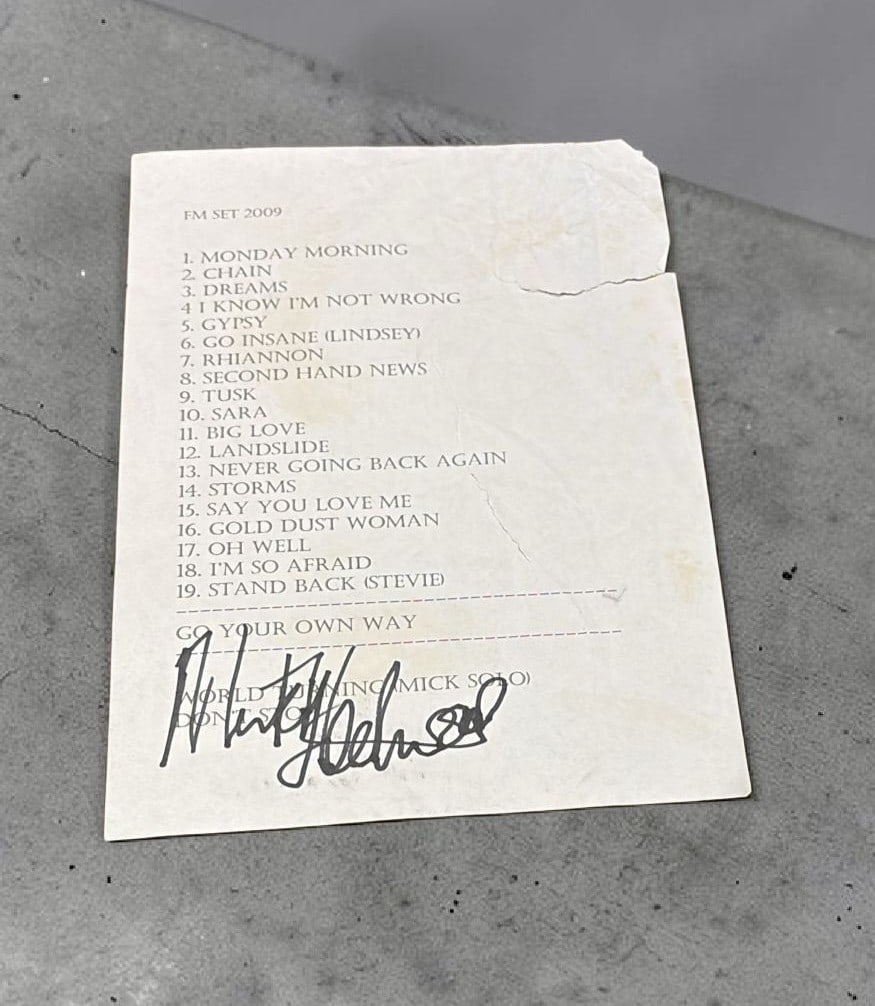 FM SET 2009
1. MONDAY MORNING
2. CHAIN
3. DREAMS
4 I KNOW I'M NOT WRONG
5. GYPSY
6. GO INSANE (LINDSEY)
7. RHIANNON
8. SECOND HAND NEWS
9. TUSK
10. SARA
11. BIG LOVE
12. LANDSLIDE
13. NEVER GOING BACK AGAIN
14. STORMS
15. SAY YOU LOVE ME
16. GOLD DUST WOMAN
17. OH WELL
18. I'M SO AFRAID
19. STAND BACK (STEVIE)
GO YOUR OWN WAY
WORLD TURNING (MICK SOLO)
DON'T STOP